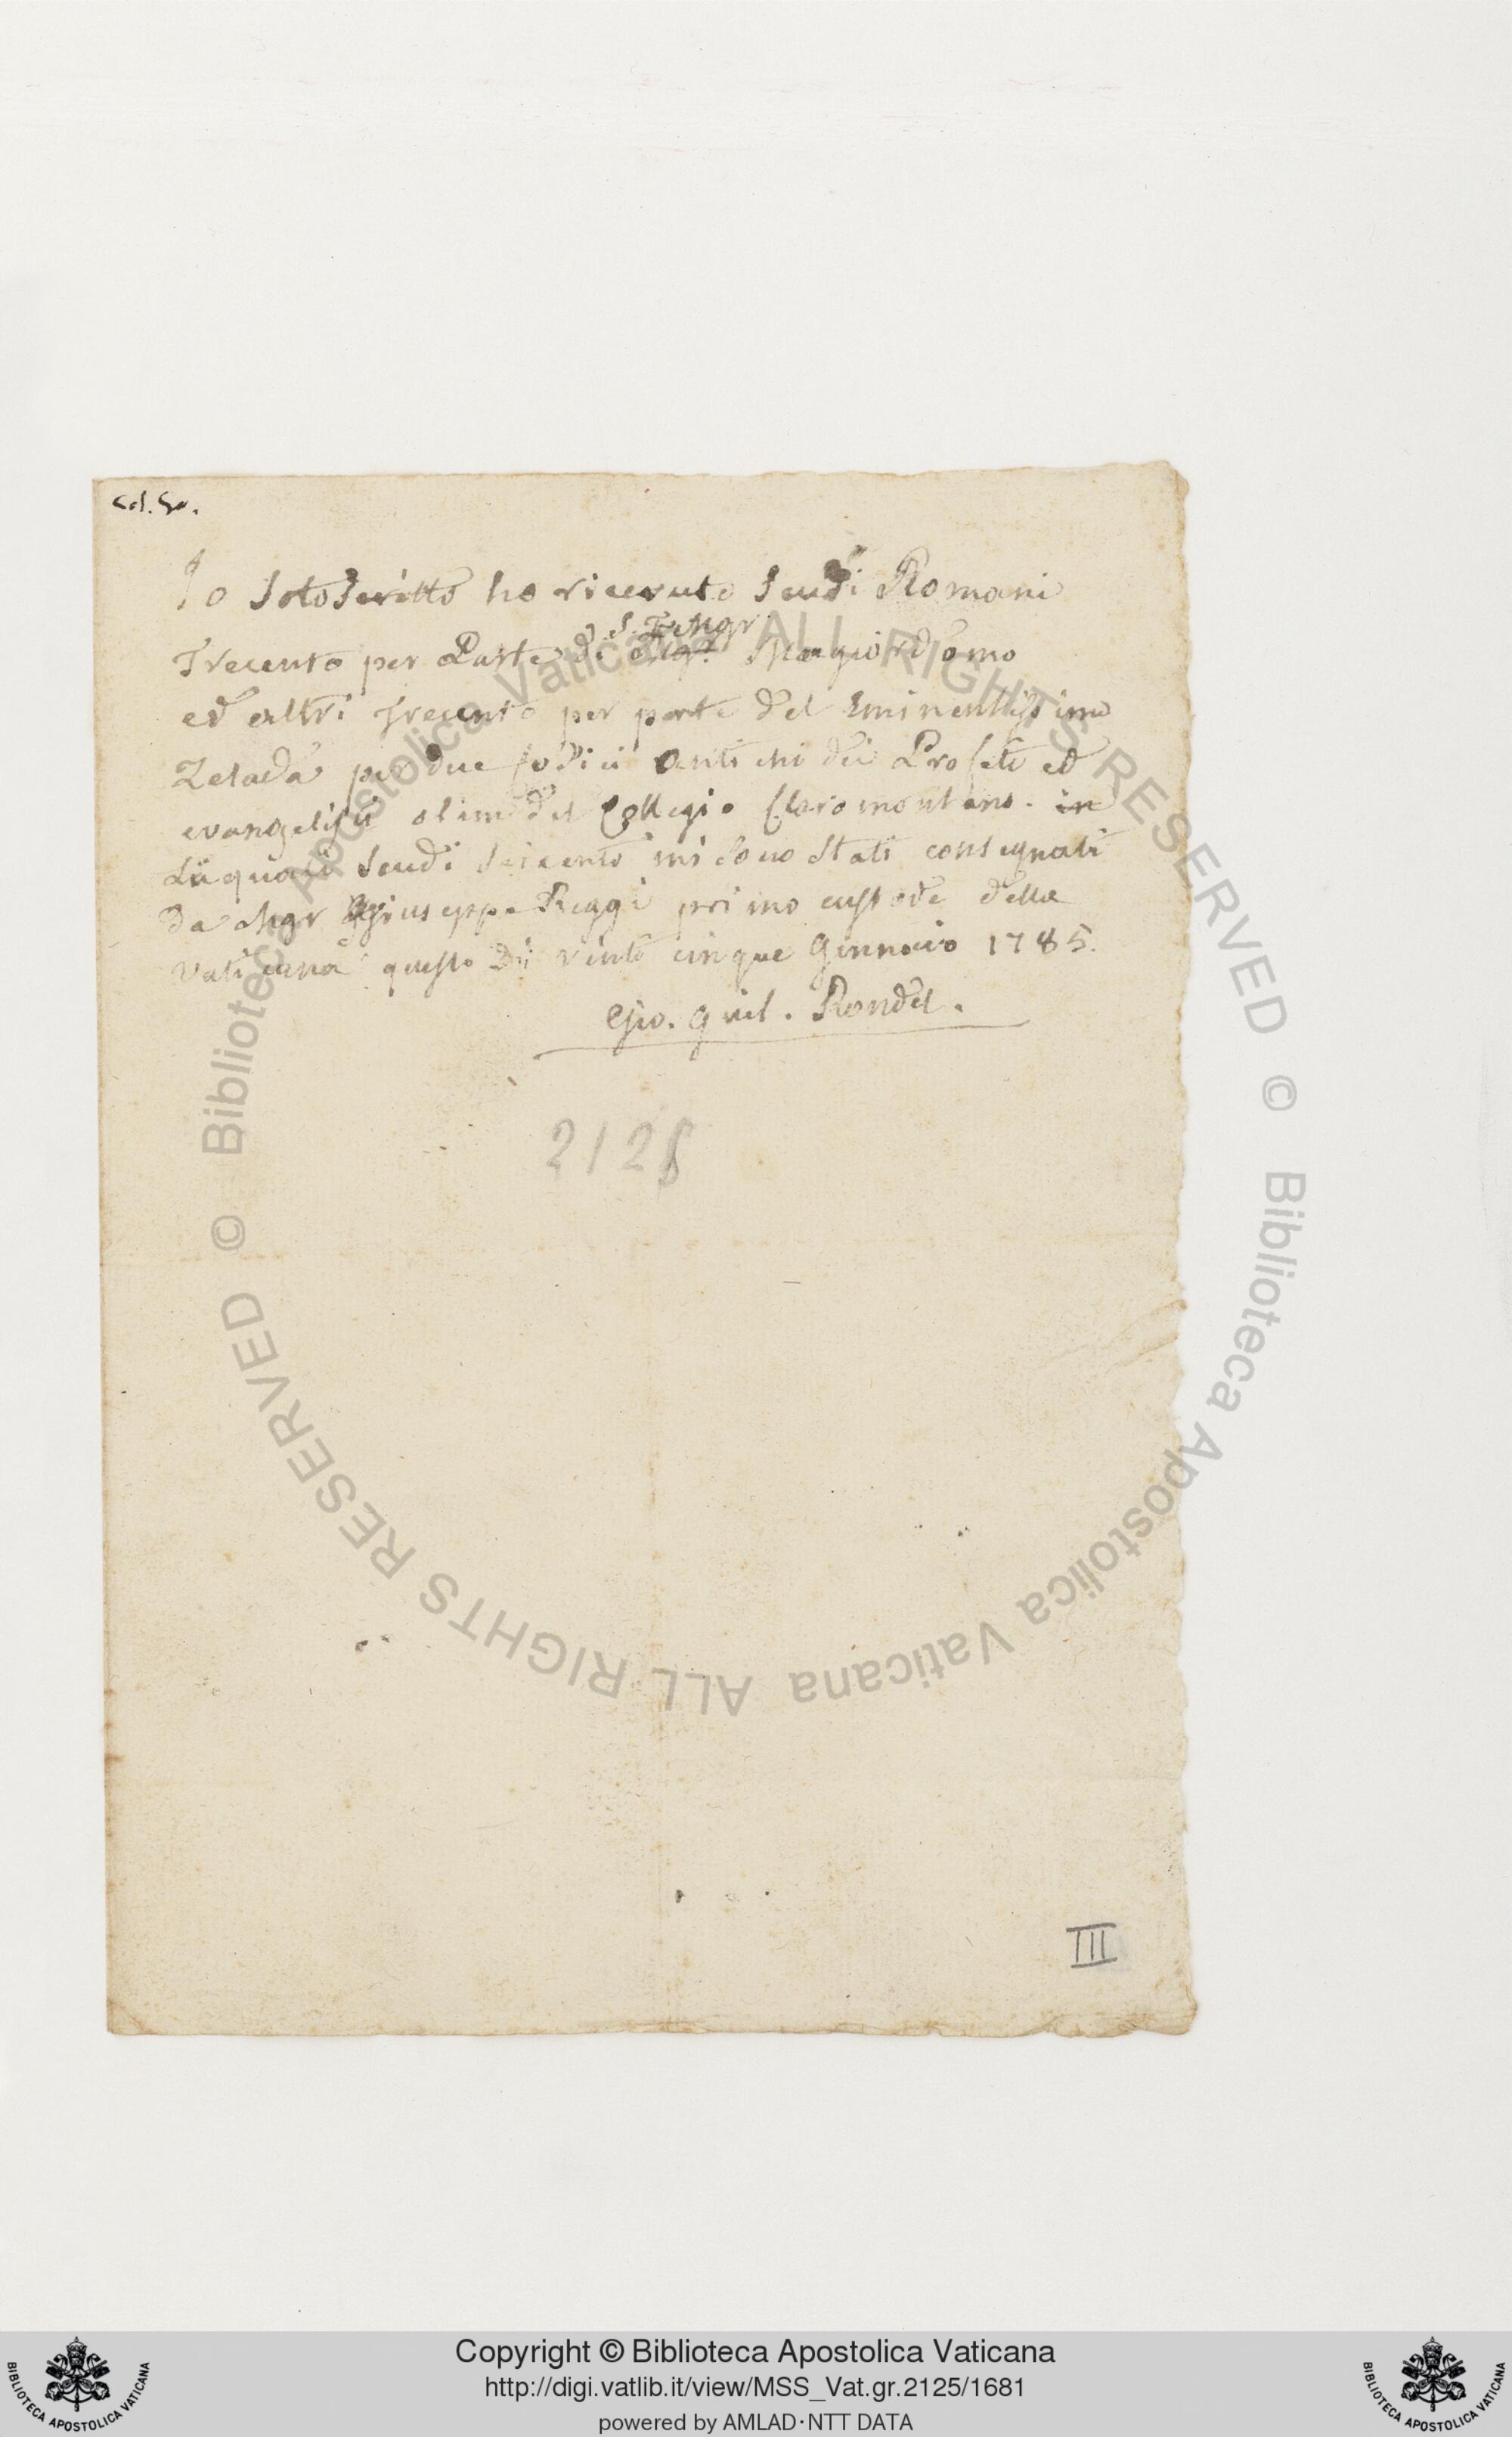 Io SotoScritto ho ricevuto Scudi Romani
Trecento per Parte di S. E. Mgr Magiordomo
ed altri Trecento per parte del Eminentissimo
Zelada per due Codici antichi dei Profeti ed
evangelisti olim del Collegio Claromontano. in
Li quali Scudi Seicento mi Sono Stati consegnati
da Mgr Giuseppe Reggi primo custode della
vaticana questo Di vinti cinque Gennaio 1785.
Gio. Guil. Rondel.
2125
III
© Biblioteca Apostolica Vaticana ALL RIGHTS RESERVED © Biblioteca Apostolica Vaticana ALL RIGHTS RESERVED
Copyright © Biblioteca Apostolica Vaticana
http://digi.vatlib.it/view/MSS_Vat.gr.2125/1681
powered by AMLAD·NTT DATA
BIBLIOTECA APOSTOLICA VATICANA
BIBLIOTECA APOSTOLICA VATICANA